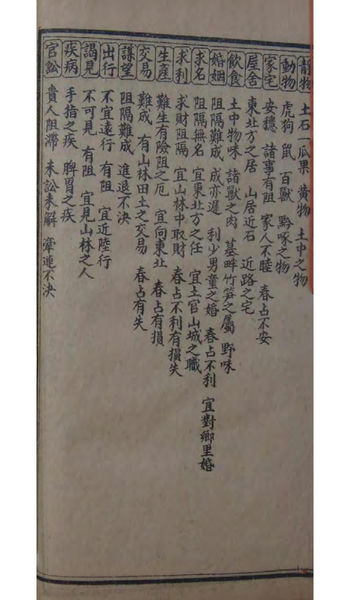 靜物 土石 瓜果 黃物 土中之物
動物 虎狗 鼠 百獸 黔啄之物
家宅 安穩 諸事有阻 家人不睦 春占不安
屋舍 東北方之居 山居近石 近路之宅
飲食 土中物味 諸獸之肉 墓畔竹筍之屬 野味
婚姻 阻隔難成 成亦遲 利少男童之婚 春占不利 宜對鄉里婚
求名 阻隔無名 宜東北方之任 宜土官山城之職
求利 求財阻隔 宜山林中取財 春占不利有損失
生產 難生有險阻之厄 宜向東北 春占有損
交易 難成 有山林田土之交易 春占有失
謀望 阻隔難成 進退不決
出行 不宜遠行 有阻 宜近陸行
謁見 不可見 有阻 宜見山林之人
疾病 手指之疾 脾胃之疾
官訟 貴人阻滯 未訟未解 牽連不決